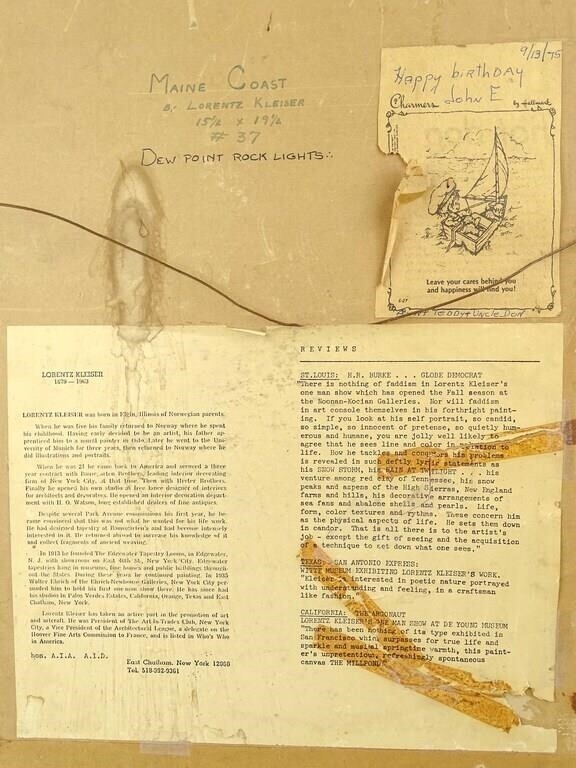 MAINE COAST
By LORENTZ KLEISER
15½ x 19½
# 37
DEW POINT ROCK LIGHTS
9/13/75
Happy birthday
John E
Charmers by Hallmark
Leave your cares behind you
and happiness will find you!
TEDDY & UNCLE DON
LORENTZ KLEISER
1879 — 1963
LORENTZ KLEISER was born in Elgin, Illinois of Norwegian parents.
When he was five his family returned to Norway where he spent
his childhood. Having early decided to be an artist, his father ap-
prenticed him to a mural painter in Oslo. Later he went to the Uni-
versity of Munich for three years, then returned to Norway where he
did illustrations and portraits.
When he was 21 he came back to America and secured a three
year contract with Baumgarten Brothers, leading interior decorating
firm of New York City, at that time. Then with Herter Brothers.
Finally he opened his own studio as free lance designer of interiors
for architects and decorators. He opened an interior decoration depart-
ment with H. O. Watson, long established dealers of fine antiques.
Despite several Park Avenue commissions his first year, he be-
came convinced that this was not what he wanted for his life work.
He had designed tapestry at Baumgarten's and had become intensely
interested in it. He returned abroad to increase his knowledge of it
and collect fragments of ancient weaving.
In 1913 he founded The Edgewater Tapestry Looms, in Edgewater,
N. J. with showroom on East 48th St., New York City. Edgewater
tapestries hang in museums, fine homes and public buildings through-
out the States. During these years he continued painting. In 1935
Walter Ehrich of the Ehrich-Newhouse Galleries, New York City per-
suaded him to hold his first one man show there. He has since had
his studios in Palos Verdes Estates, California, Orange, Texas and East
Chatham, New York.
Lorentz Kleiser has taken an active part in the promotion of art
and artcraft. He was President of The Art-In-Trades Club, New York
City, a Vice President of the Architectural League, a delegate on the
Hoover Fine Arts Commission to France, and is listed in Who's Who
in America.
hon. A.I.A. A.I.D.
East Chatham, New York 12060
Tel. 518-392-9361
REVIEWS
ST.LOUIS: H.R. BURKE . . . GLOBE DEMOCRAT
"There is nothing of faddism in Lorentz Kleiser's
one man show which has opened the Fall season at
the Noonan-Kocian Galleries. Nor will faddism
in art console themselves in his forthright paint-
ing. If you look at his self portrait, so candid,
so simple, so innocent of pretense, so quietly hum-
erous and humane, you are jolly well likely to
agree that he sees line and color in relation to
life. How he tackles and conquers his problems
is revealed in such deftly lyric statements as
his SNOW STORM, his RAIN AT TWILIGHT . . . his
venture among red clay of Tennessee, his snow
peaks and aspens of the High Sierras, New England
farms and hills, his decorative arrangements of
sea fans and abalone shells and pearls. Life,
form, color textures and rythms. These concern him
as the physical aspects of life. He sets them down
in candor. That is all there is to the artist's
job - except the gift of seeing and the acquisition
of a technique to set down what one sees."
TEXAS: SAN ANTONIO EXPRESS:
WITTE MUSEUM EXHIBITING LORENTZ KLEISER'S WORK.
"Kleiser is interested in poetic nature portrayed
with understanding and feeling, in a craftsman
like fashion."
CALIFORNIA: THE ARGONAUT
LORENTZ KLEISER'S ONE MAN SHOW AT DE YOUNG MUSEUM
"There has been nothing of its type exhibited in
San Francisco which surpasses for true life and
sparkle and musical springtime warmth, this paint-
er's unpretentious, refreshingly spontaneous
canvas THE MILLPOND."